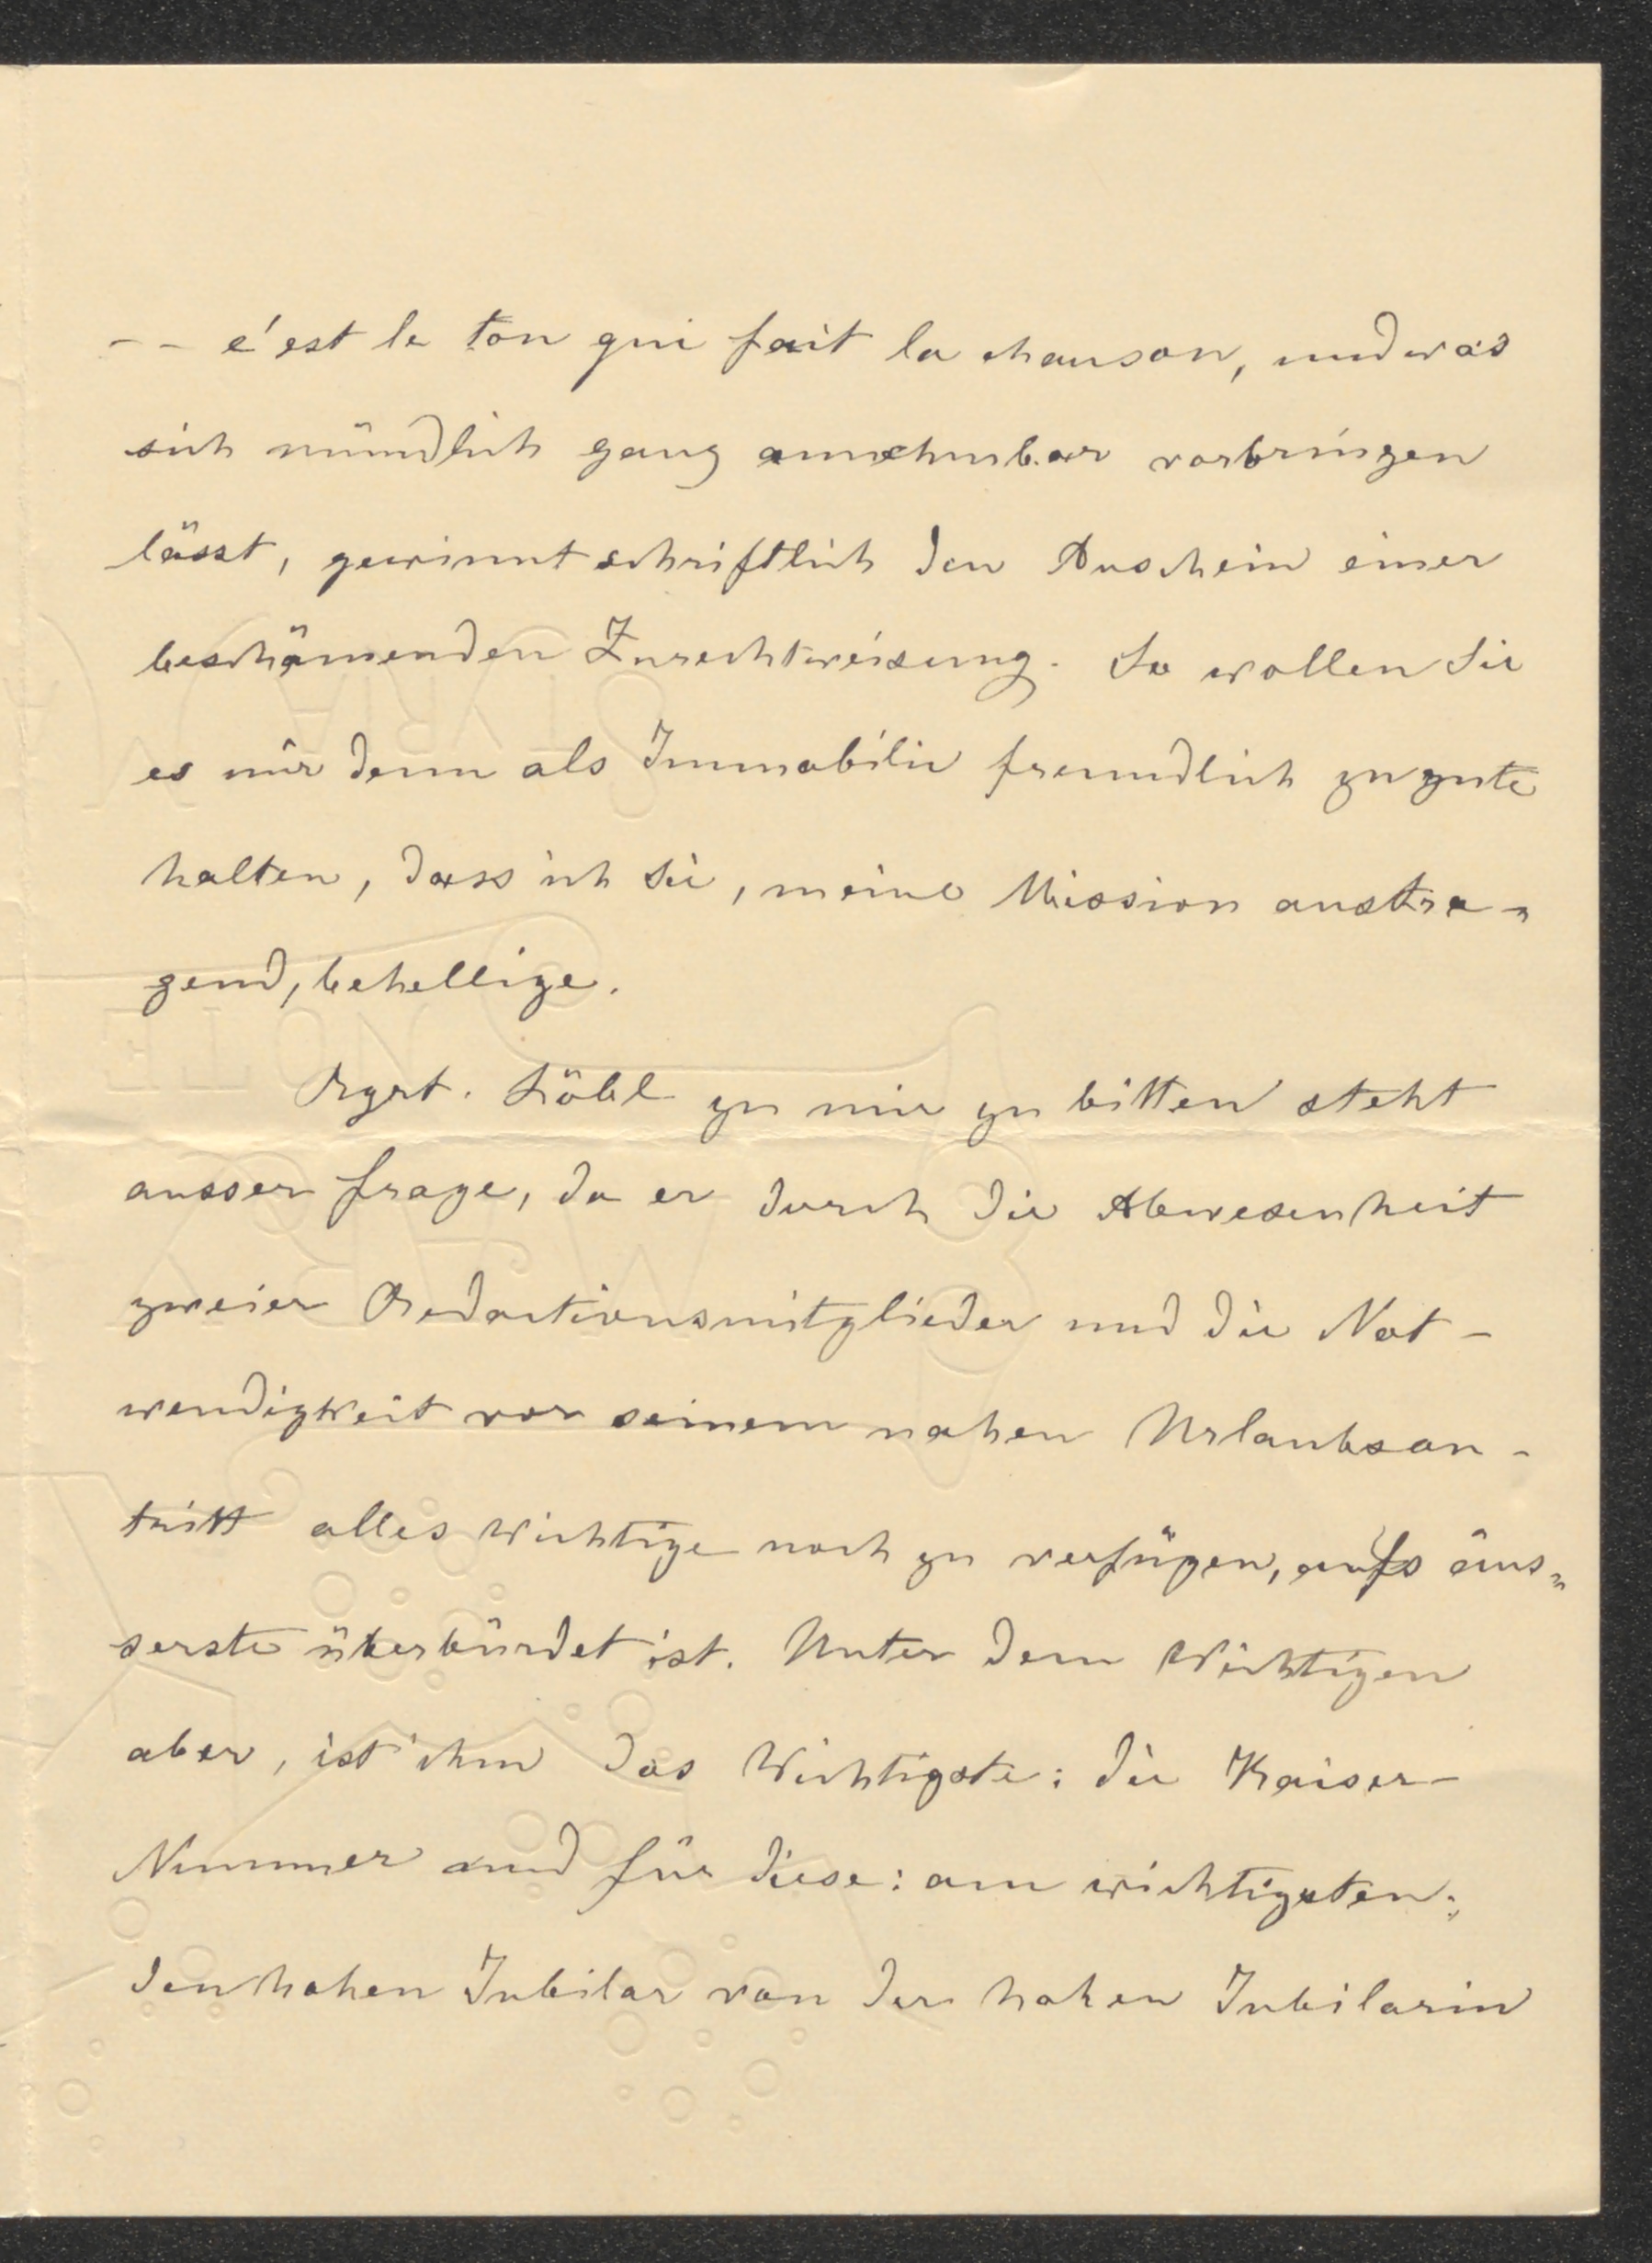 – – c'est le ton qui fait la chanson, und was
sich mündlich ganz annehmbar vorbringen
lässt, gewinnt schriftlich den Anschein einer
beschämenden Zurechtweisung. So wollen Sie
es mir denn als Immobilie freundlich zugute
halten, dass ich Sie, meine Mission austra-
gend, behellige.
Rgrt. Löbl zu mir zu bitten steht
ausser Frage, da er durch die Abwesenheit
zweier Redactionsmitglieder und die Not-
wendigkeit vor seinem nahen Urlaubsan-
tritt alles Wichtige noch zu verfügen, aufs äus-
serste überbürdet ist. Unter dem Wichtigen
aber, ist ihm das Wichtigste: die Kaiser-
Nummer und für diese: am wichtigsten:
den hohen Jubilar von der hohen Jubilarin